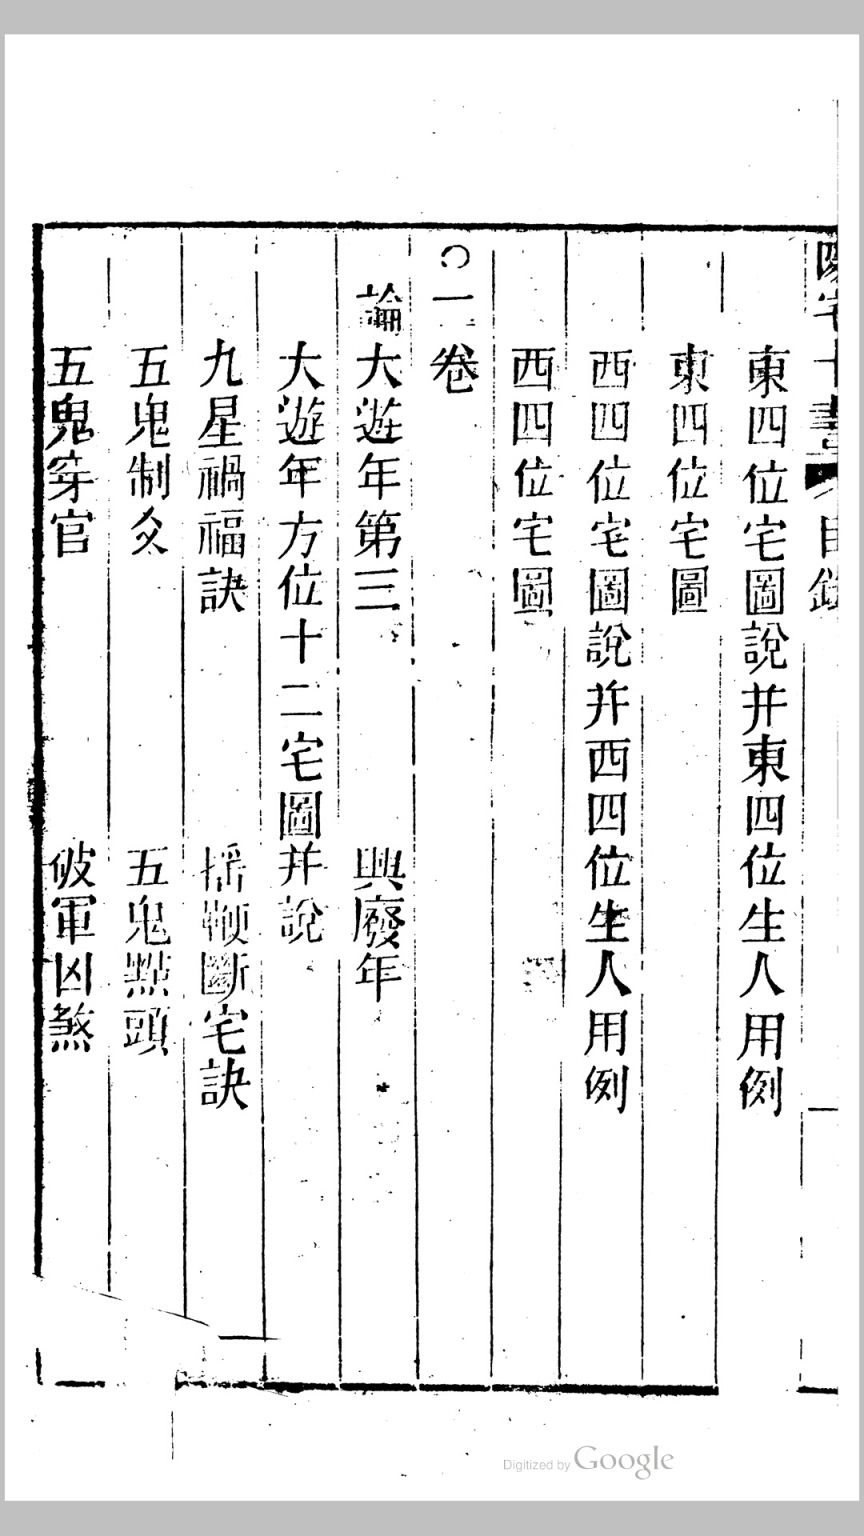 陽宅十書 目錄
東四位宅圖說并東四位生人用例
東四位宅圖
西四位宅圖說并西四位生人用例
西四位宅圖
○一卷
論大遊年第三 興廢年
大遊年方位十二宅圖并說
九星禍福訣 搖鞭斷宅訣
五鬼制爻 五鬼點頭
五鬼穿官 破軍凶煞
Digitized by Google